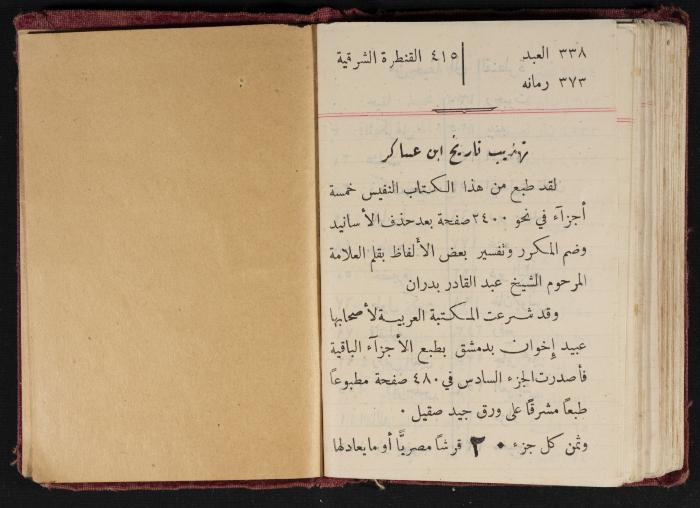 ٣٣٨ العبد | ٤١٥ القنطرة الشرقية
٣٧٣ رمانه
تهذيب تاريخ ابن عساكر
لقد طبع من هذا الكتاب النفيس خمسة
أجزآء في نحو ٢٤٠٠ صفحة بعد حذف الأسانيد
وضم المكرر وتفسير بعض الألفاظ بقلم العلامة
المرحوم الشيخ عبد القادر بدران
وقد شرعت المكتبة العربية لأصحابها
عبيد إخوان بدمشق بطبع الأجزآء الباقية
فأصدرت الجزء السادس في ٤٨٠ صفحة مطبوعاً
طبعاً مشرقاً على ورق جيد صقيل .
وثمن كل جزء ٢٠ قرشاً مصريًّا أو ما يعادلها